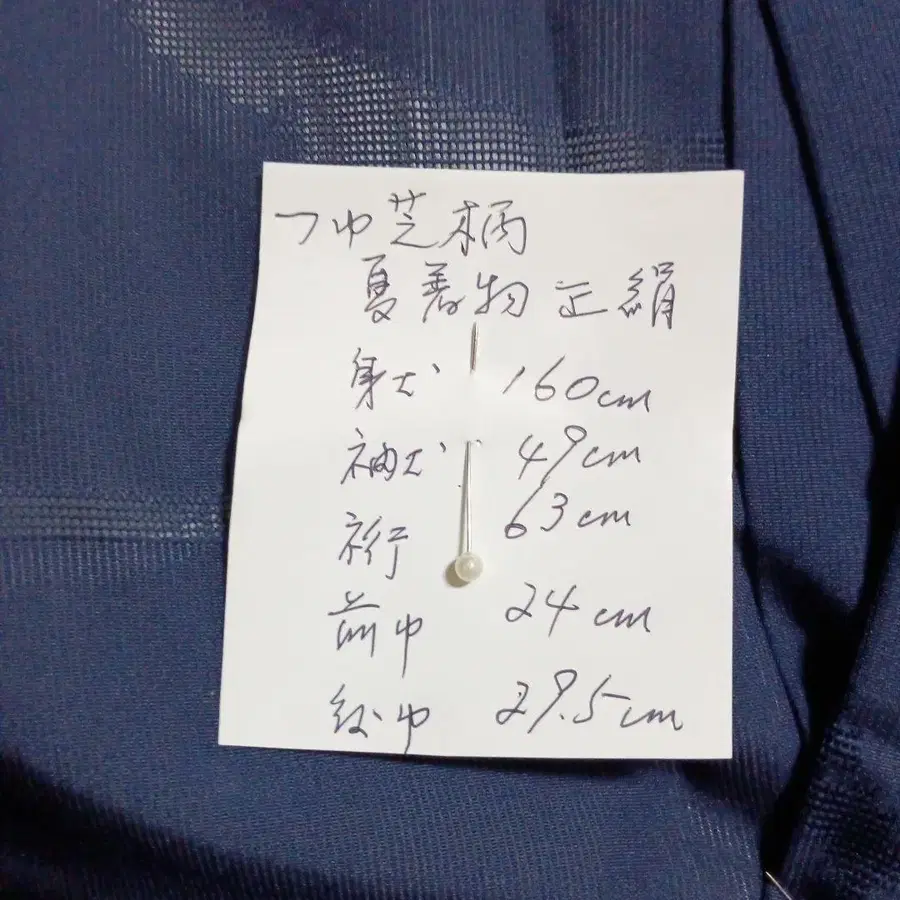 つゆ芝柄
夏着物 正絹
身丈 160cm
袖丈 49cm
裄 63cm
前巾 24cm
後巾 29.5cm